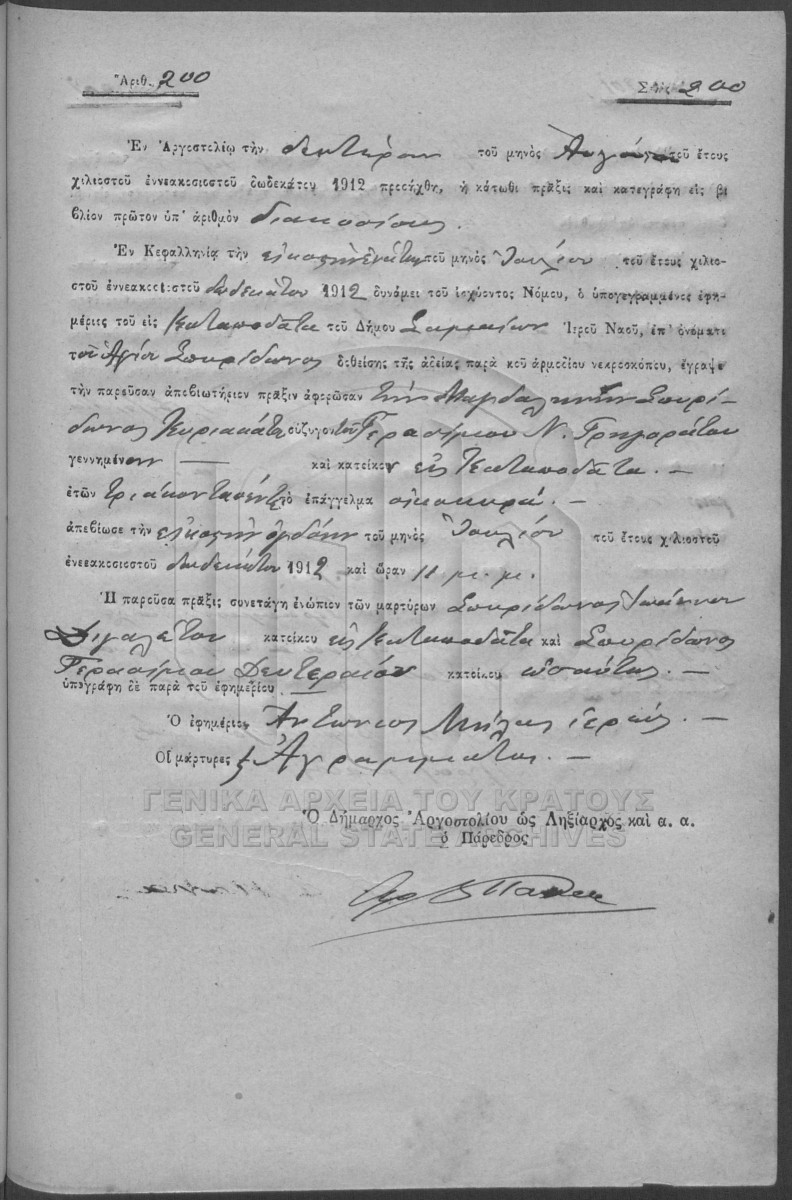 Ἀριθ. 200
Σελὶς 200
Ἐν Ἀργοστολίῳ τὴν δευτέραν τοῦ μηνὸς Αὐγούστου τοῦ ἔτους
χιλιοστοῦ ἐννεακοσιοστοῦ δωδεκάτου 1912 προσήχθη, ἡ κάτωθι πρᾶξις καὶ κατεγράφη εἰς βι
βλίον πρῶτον ὑπ' ἀριθμὸν διακοσίους.
Ἐν Κεφαλληνίᾳ τὴν εἰκοστὴν ἐνάτην τοῦ μηνὸς Ἰουλίου τοῦ ἔτους χιλιο-
στοῦ ἐννεακοσιοστοῦ δωδεκάτου 1912 δυνάμει τοῦ ἰσχύοντος Νόμου, ὁ ὑπογεγραμμένος ἐφη-
μέριος τοῦ εἰς Καταποδάτα τοῦ Δήμου Σαμαίων Ἱεροῦ Ναοῦ, ἐπ' ὀνόματι
τοῦ Ἁγίου Σπυρίδωνος δοθείσης τῆς ἀδείας παρὰ τοῦ ἁρμοδίου νεκροσκόπου, ἔγραψε
τὴν παροῦσαν ἀποβιωτήριον πρᾶξιν ἀφορῶσαν τὴν Μαγδαληνὴν Σπυρί-
δωνος Κυριακάτου σύζυγον τοῦ Γερασίμου Ν. Γρηγοράτου
γεννημένην — καὶ κατοίκου εἰς Καταποδάτα. —
ἐτῶν τριάκοντα πέντε τὸ ἐπάγγελμα οἰκοκυρά. —
ἀπεβίωσε τὴν εἰκοστὴν ὀγδόην τοῦ μηνὸς Ἰουλίου τοῦ ἔτους χιλιοστοῦ
ἐννεακοσιοστοῦ δωδεκάτου 1912 καὶ ὥραν 11 μ. μ.
Ἡ παροῦσα πρᾶξις συνετάγη ἐνώπιον τῶν μαρτύρων Σπυρίδωνος Ἰωάννου
Διγαλέτου κατοίκου εἰς Καταποδάτα καὶ Σπυρίδωνος
Γερασίμου Δευτεραίου κατοίκου ὡσαύτως. —
ὑπεγράφη δὲ παρὰ τοῦ ἐφημερίου. —
Ὁ ἐφημέριος Ἀντώνιος Μήλας ἱερεύς. —
Οἱ μάρτυρες Ἀγράμματοι. —
ΓΕΝΙΚΑ ΑΡΧΕΙΑ ΤΟΥ ΚΡΑΤΟΥΣ
GENERAL STATE ARCHIVES
Ὁ Δήμαρχος Ἀργοστολίου ὡς Ληξίαρχος καὶ α. α.
ὁ Πάρεδρος